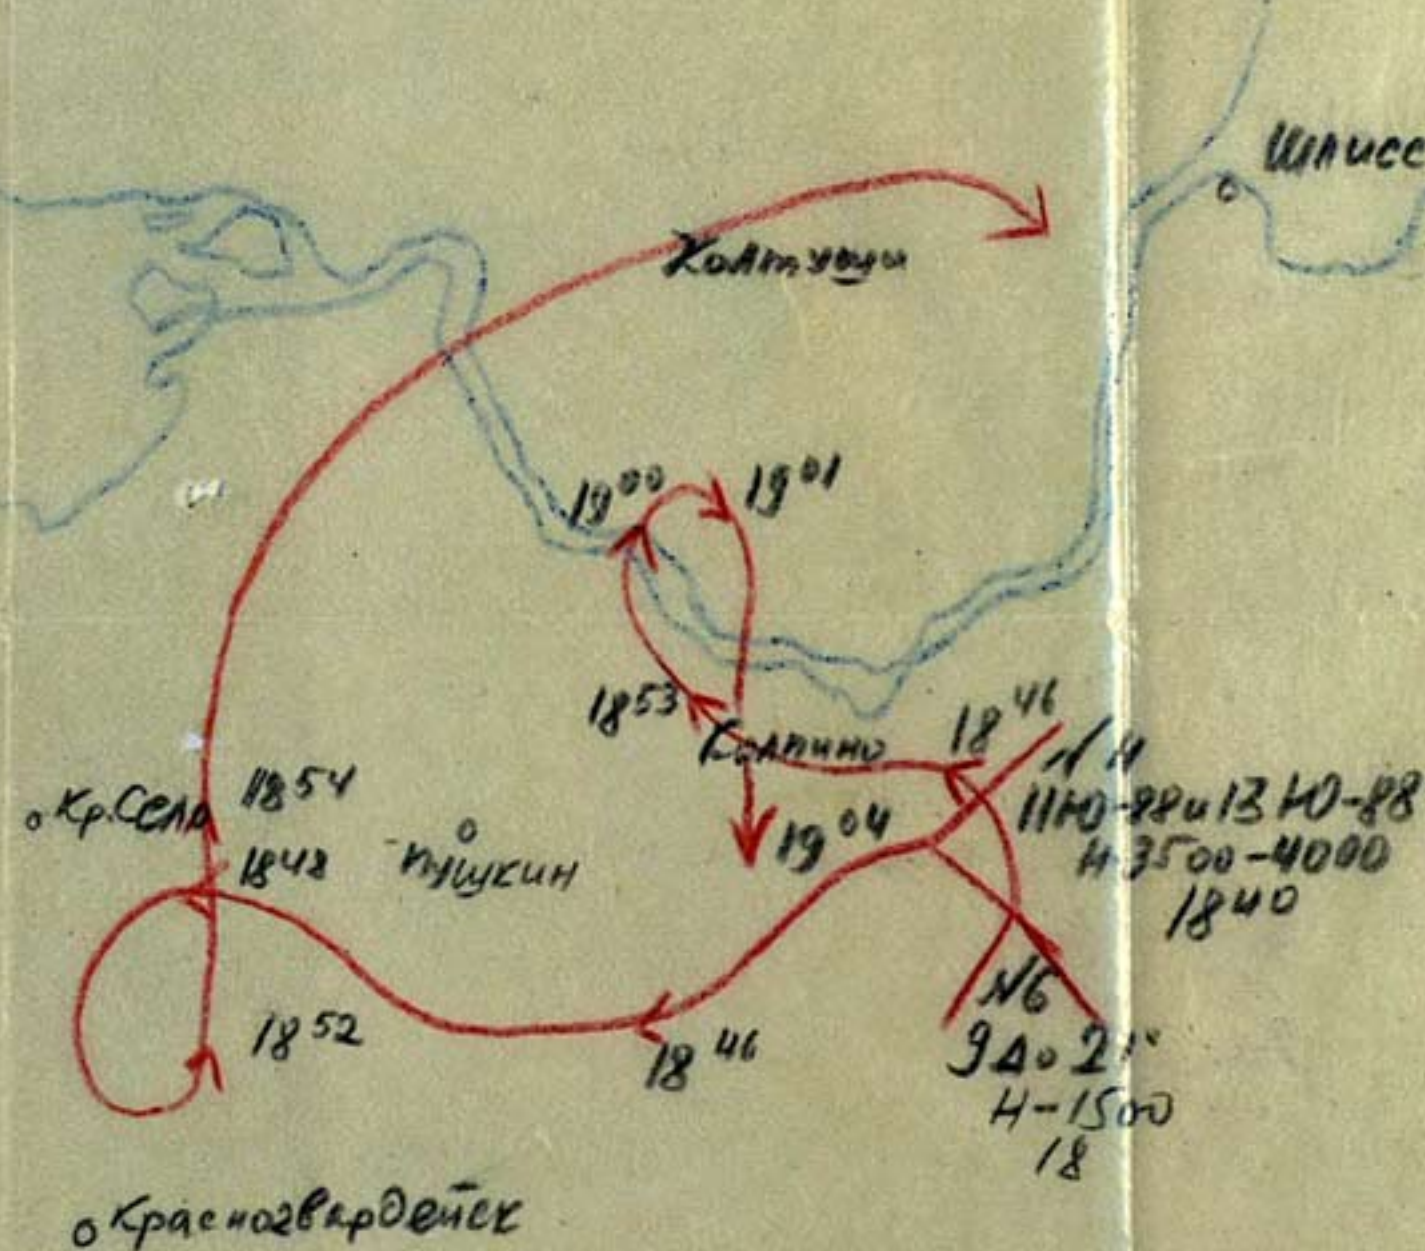 Шлисс
Колтуши
19 00
19 01
18 53
Колпино
18 46
N 4
11 Ю-88 и 13 Ю-88
Н-3500-4000
18 40
Кр. Село
18 54
18 48
Пушкин
19 04
18 52
18 46
N6
9 До 21
Н-1500
18
Красногвардейск